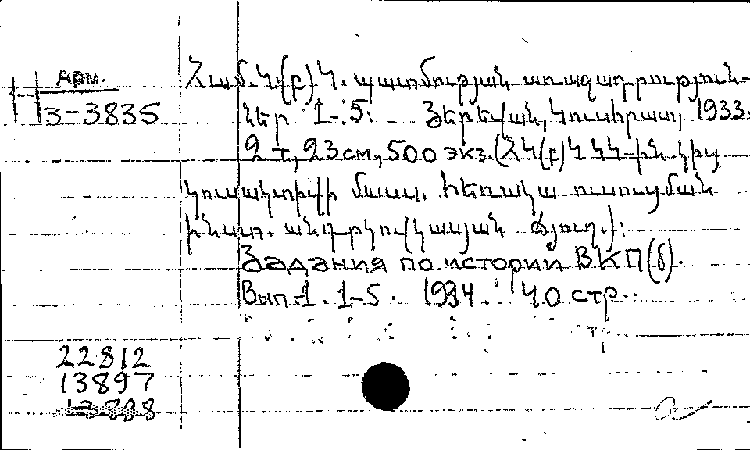 Арм.
3-3835
Համ.Կ.(բ)Կ. պատմության առաջադրություն-
ներ 1-5: Յերեվան, Կուսհրատ, 1933.
2 т, 23 см, 500 экз. (ՀԿ(բ)Կ ԿԿ-ին կից
կուսակտիվի մասս. հեռակա ուսուցման
ինստ. անդրկովկասյան ճյուղ.):
Задания по истории ВКП(б).
Вып.1. 1-5. 1934. 40 стр.
22812
13897